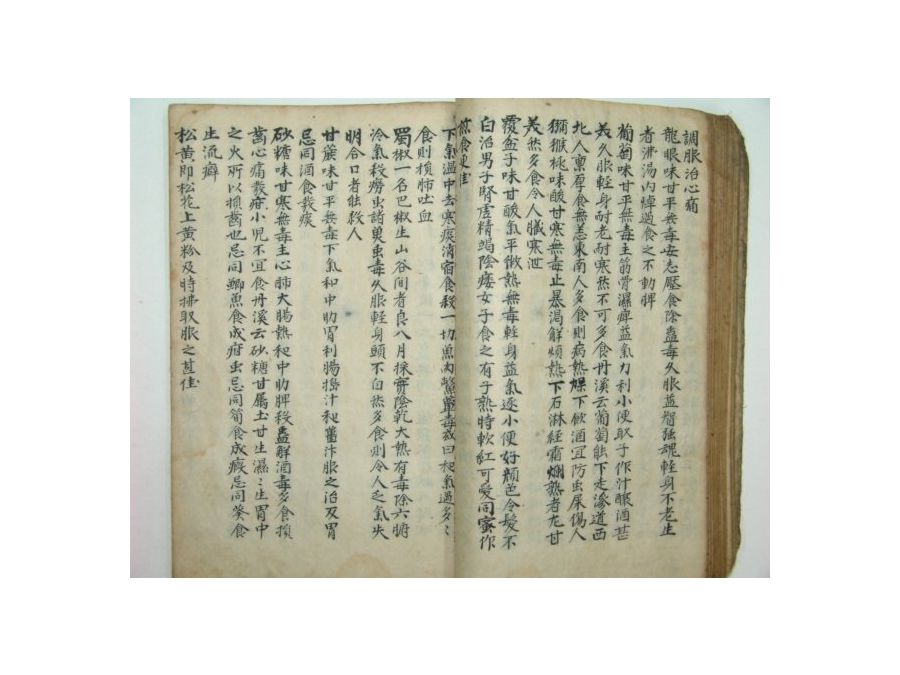 調服治心痛
龍眼味甘平無毒安志壓食除蠱毒久服益智強魂輕身不老生
者沸湯內焯過食之不動脾
葡萄味甘平無毒主筋骨濕痺益氣力利小便取子作汁釀酒甚
美久服輕身耐老耐寒然不可多食丹溪云葡萄能下走滲道西
北人稟厚食無恙東南人多食則病熱下飲酒宜防虫尿傷人
獼猴桃味酸甘寒無毒止暴渴解煩熱下石淋經霜爛熟者尤甘
美然多食令人臟寒泄
覆盆子味甘酸氣平微熱無毒輕身益氣逐小便好顏色令髮不
白治男子腎虛精竭陰痿女子食之有子熟時軟紅可愛同蜜作
煎食更佳
下氣溫中去寒痰消宿食殺一切魚肉鱉蕈毒或曰椒氣過多〻
食則損肺吐血
蜀椒一名巴椒生山谷間者良八月採實陰乾大熱有毒除六腑
冷氣殺癆虫諸蠱虫毒久服輕身頭不白然多食則令人乏氣失
明合口者能殺人
甘蔗味甘平無毒下氣和中助胃利腸搗汁和薑汁服之治反胃
忌同酒食發痰
砂糖味甘寒無毒主心肺大腸熱和中助脾殺蠱解酒毒多食損
齒心痛發疳小兒不宜食丹溪云砂糖甘屬土甘生濕〻生胃中
之火所以損齒也忌同鯽魚食成疳虫忌同筍食成癥忌同葵食
生流澼
松黃即松花上黃粉及時拂取服之甚佳